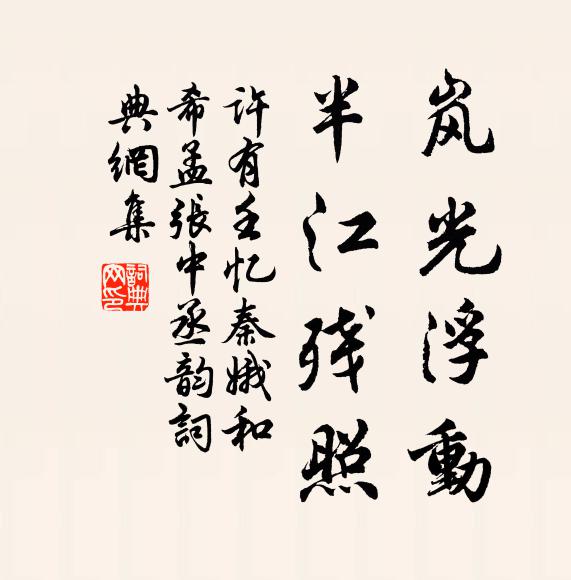 岚光浮動
半江残照
许有壬忆秦娥和
希孟張中丞韵詞
典網集
詞典网印